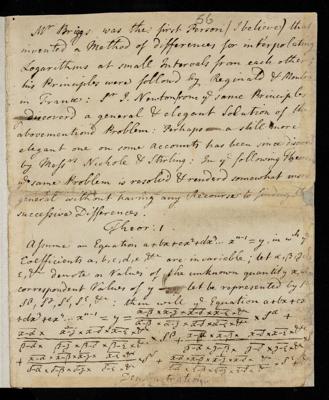 56
Mr Briggs was the first Person (I believe) that
invented a Method of Differences for interpolating
Logarithms at small Intervals from each other;
his Principles were followd by Reginald & Mouton
in France: Sr I. Newton from ye same Principles
discoverd a general & elegant Solution of the
abovemention'd Problem: Perhaps a still more
elegant one on some Accounts has been since discoverd
by Messrs Nichole & Stirling: In ye following Theorem
ye same Problem is resolvd & renderd somewhat more
general without having any Recourse to finding the
successive Differences.
Theor: 1.
Assume an Equation a+bx+cx²+dx³... xⁿ⁻¹ = y, in wch ye
Coefficients a, b, c, d, e, &c are invariable; let α, β, γ, δ,
ε, &c denote n Values of the unknown quantity x, whose
correspondent Values of y let be represented by Sα,
Sβ, Sγ, Sδ, Sε, &c: then will ye Equation a+bx+cx²+
dx³+ex⁴... xⁿ⁻¹ = y =
Demonstration